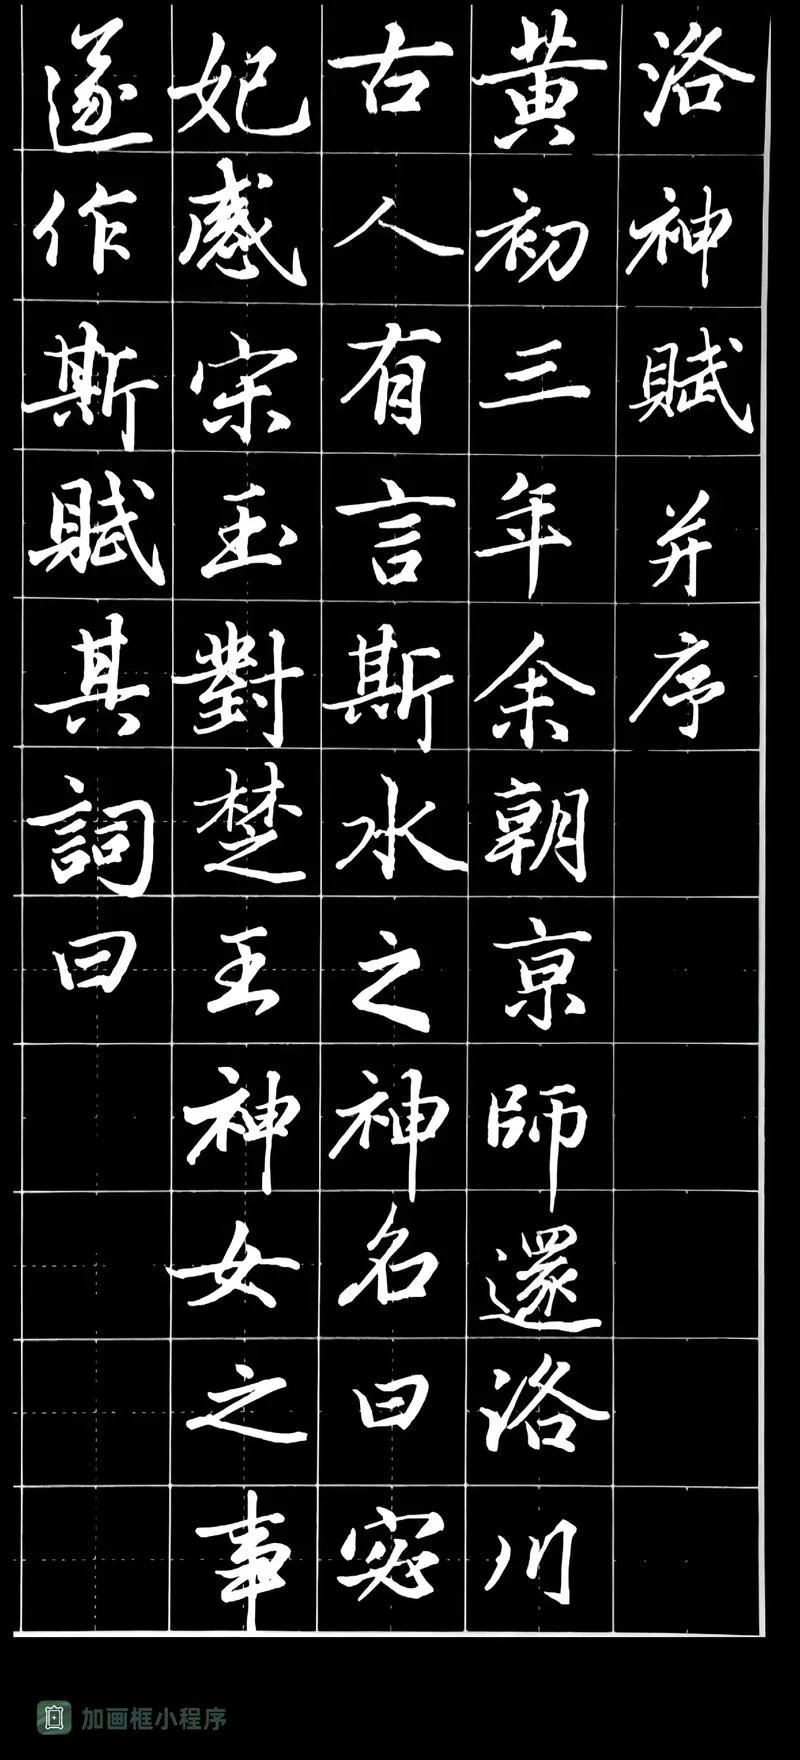 洛神賦并序
黄初三年余朝京師還洛川
古人有言斯水之神名曰宓
妃感宋玉對楚王神女之事
遂作斯賦其詞曰
加画框小程序